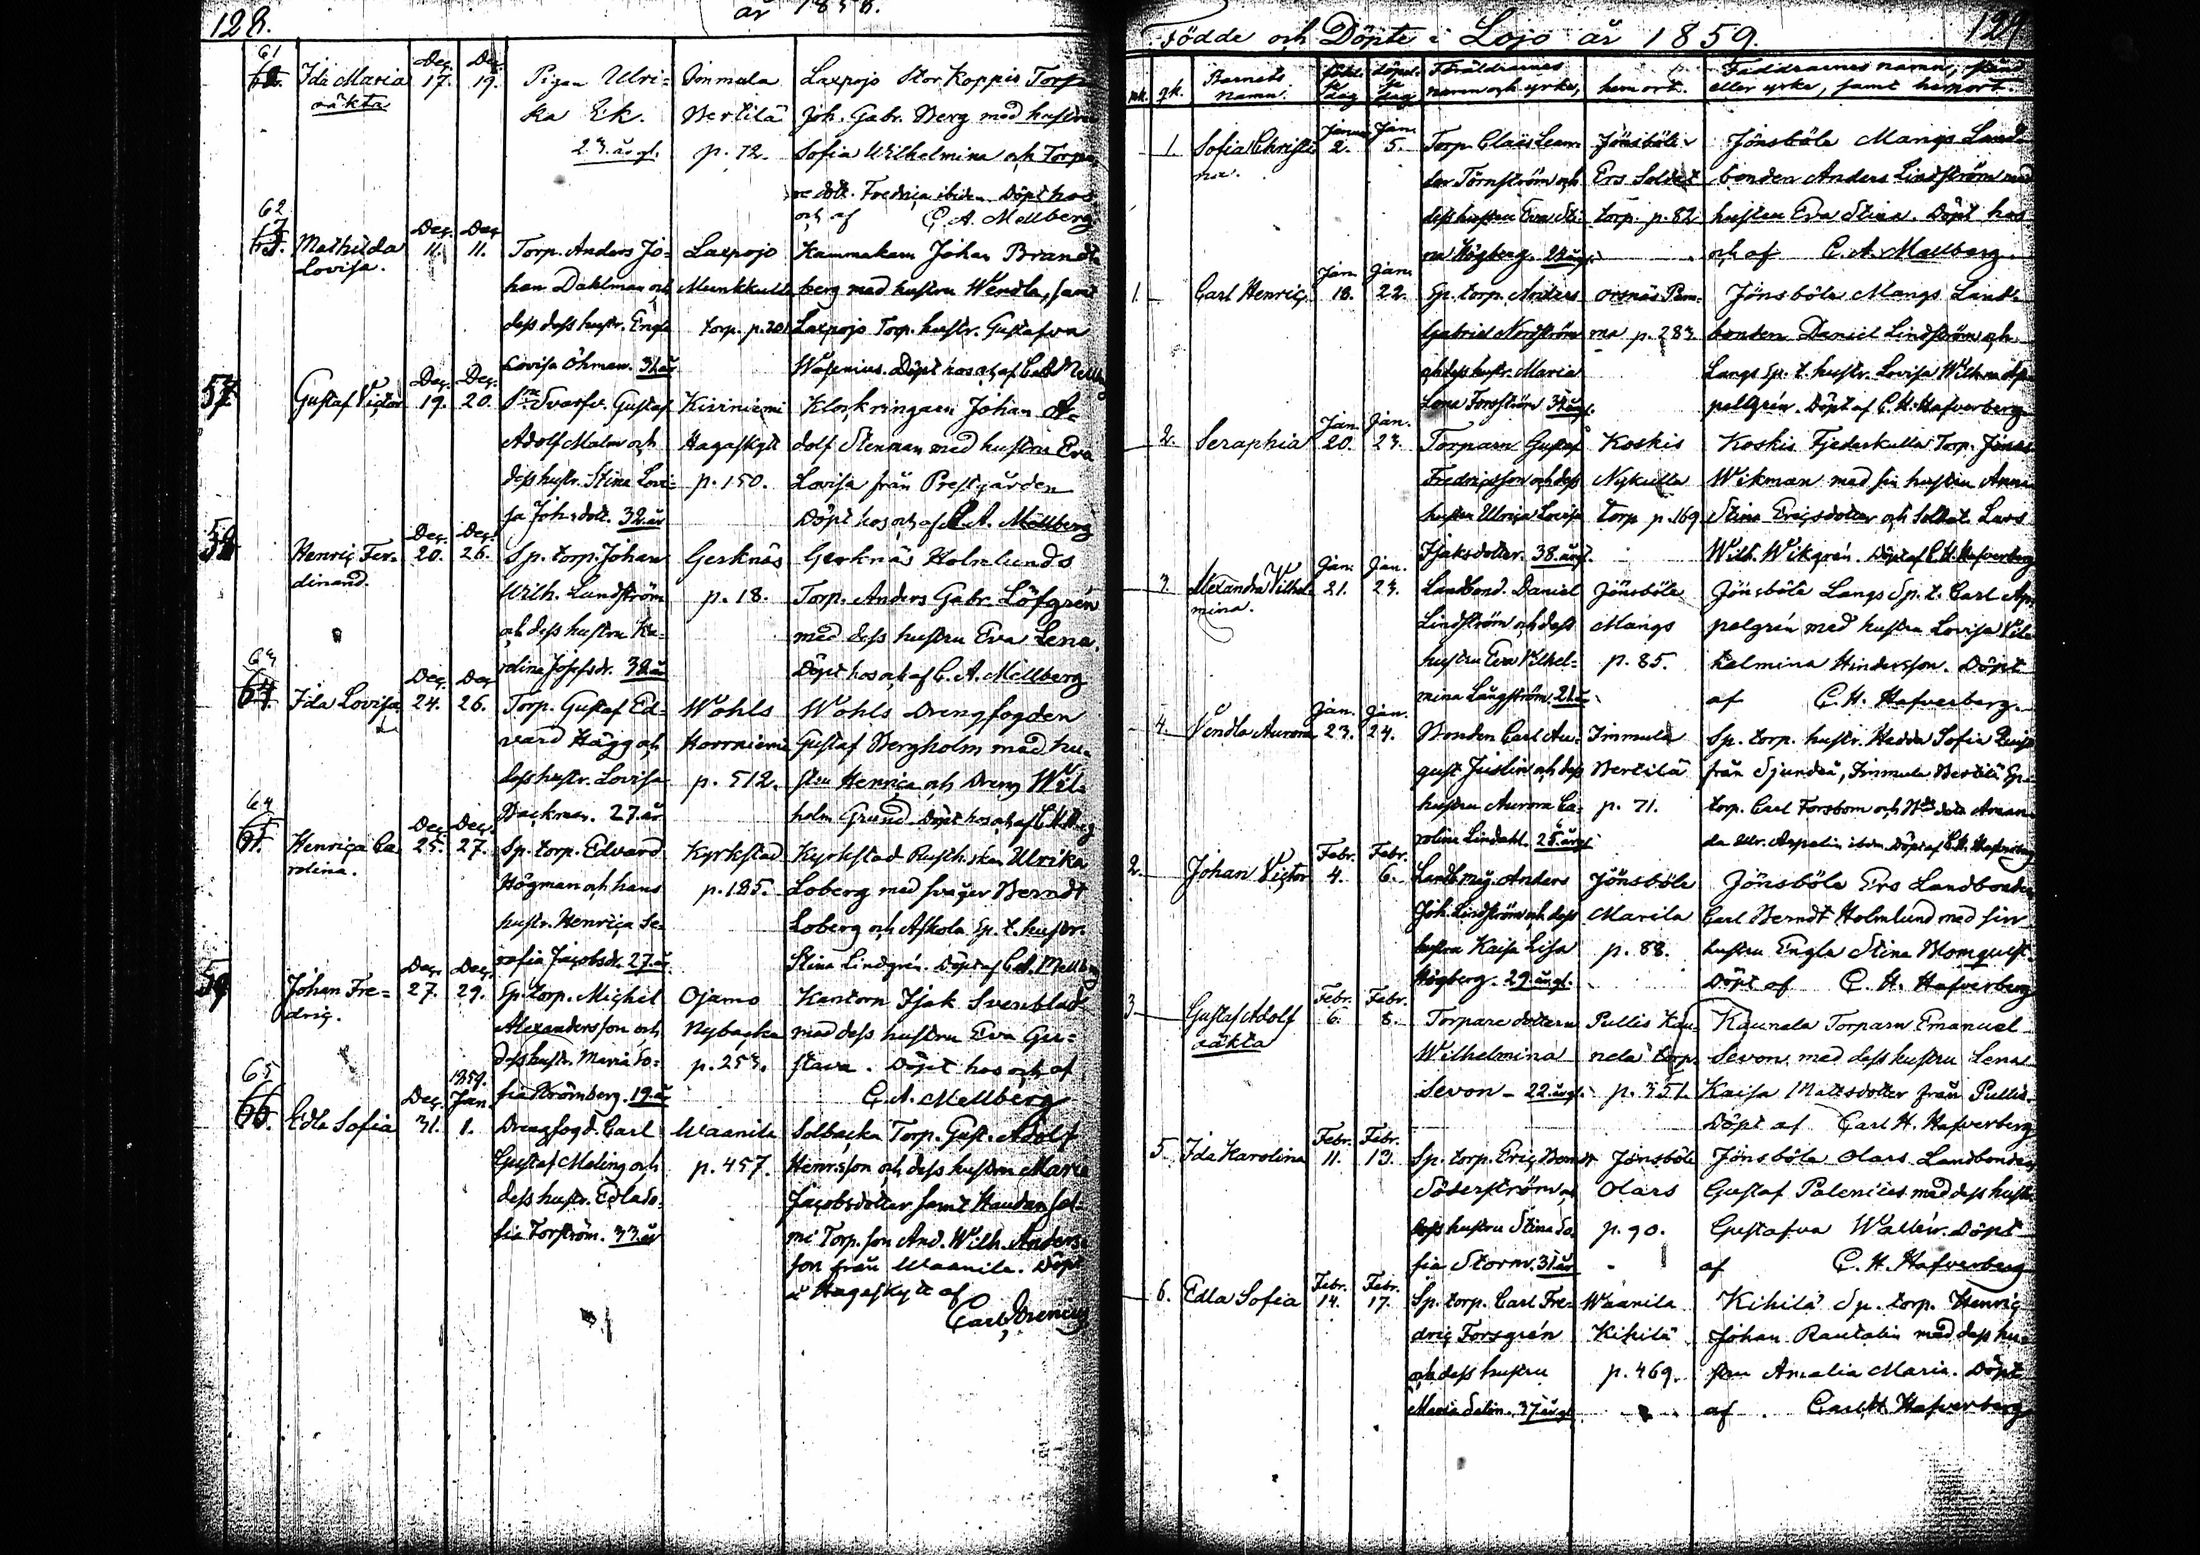 128.
år 1858.
61
Ida Maria
oäkta
Dec. 17.
Dec. 19.
Pigan Ulri-
ka Ek.
23. år gl.
Immula
Bertilä
p. 72.
Laxpojo Stor Koppis Torp
Joh. Gabr. Berg med hustru
Sofia Wilhelmina och Torpa-
re dott. Fredrica ibidem Döpt hos
och af C. A. Mellberg
62
Mathilda
Lovisa.
Dec. 11.
Dec. 11.
Torp. Anders Jo-
han Dahlman och
dess hustr. Engla
Lovisa Öhman. 31. år
Laxpojo
Munkkulla
torp. p. 201
Kammakarn Johan Brandt-
berg med hustru Wendla, samt
Laxpojo Torp. hustr. Gustafva
Wasenius. Döpt hos och af
57.
Gustaf Victor
Dec. 19.
Dec. 20.
Svarfv. Gustaf
Adolf Malm och
dess hustr. Stina Lovi-
sa Joh:dott. 32. år
Kiviniemi
Hagaskytt
p. 150.
Klockringaren Johan A-
dolf Stenman med hustru Eva
Lovisa från Prestgården
Döpt hos och af C. A. Mellberg
58.
Henric Fer-
dinand.
Dec. 20.
Dec. 26.
Sp. torp. Johan
Wilh. Lundström
och dess hustru Ka-
rolina Josefsdr. 38. år
Gerknäs
p. 18.
Gerknäs Holmlunds
Torp. Anders Gabr. Löfgrén
med dess hustru Eva Lena.
Döpt hos och af C. A. Mellberg
63
Ida Lovisa
Dec. 24.
Dec. 26.
Torp. Gustaf Ed-
vard Hägg och
dess hustr. Lovisa
Backman. 27. år
Wohls
Horrniemi
p. 512.
Wohls Drengfogden
Gustaf Bergholm med hu-
stru Henrica och Dreng Wil-
helm Grund. Döpt hos och af
64
Henrica Ca-
rolina.
Dec. 25.
Dec. 27.
Sp. torp. Edvard
Högman och hans
hustr. Henrica Se-
rafia Jacobsdr. 27. år
Kyrkstad
p. 185.
Kyrkstad Ulrika
Loberg med svåger Berndt
Loberg och Askola Sp. t. hustr.
Stina Lindgrén. Döpt af C. A. Mellberg
59
Johan Fre-
dric.
Dec. 27.
Dec. 29.
Sp. torp. Michel
Alexandersson och
dess hustr. Maria So-
fia Strömberg. 19. år
Ojamo
Nybacka
p. 253.
Kantorn Isak Svenblad
med dess hustru Eva Gu-
stava. Döpt hos och af
C. A. Mellberg
65
66.
Edla Sofia
Dec. 31.
1859. Jan. 1.
Drengfogd. Carl
Gustaf Maling och
dess hustr. Edla So-
fia Forström. 33. år
Waanila
p. 457.
Solbacka Torp. Gust. Adolf
Henrsson och dess hustru Maria
Jacobsdotter samt
Torp. son And. Wilh. Anders-
son från Waanila. Döpt
i Hagaskytt af
129
Födde och Döpte i Lojo år 1859.
mk.
qk.
Barnets
namn.
födel-
se
dag
döpel-
se
dag
Föräldrarnes
namn och yrke,
hemort.
Faddrarnes namn, stånd
eller yrke, samt hemort.
1.
Sofia Christi-
na.
Januari 2.
Jan. 5.
Torp. Claës Lean-
der Törnström och
dess hustru Eva Sti-
na Högberg.
Jönsböle
Ers Soldat
torp. p. 82
Jönsböle Mangs Land-
bonden Anders Lindström med
hustru Eva Stina. Döpt hos
och af C. A. Mellberg.
1
Carl Henric
Jan. 18.
Jan. 22.
Sp. torp. Anders
Gabriel Nordström
och dess hustr. Maria
Lena Forsström
Ornäs
p. 283
Jönsböle Mangs Land-
bonden Daniel Lindström och
Langs Sp. t. hustr. Lovisa Wilhma Ap-
pelgrén. Döpt af C. H. Hafverberg
2.
Seraphia
Jan. 20.
Jan. 23.
Torparn Gustaf
Fredricsson och dess
hustru Ulrica Lovisa
Isaksdotter. 38. år gl.
Koskis
Nykulla
torp p. 169
Koskis Fjederkulla Torp. Jonas
Wikman med sin hustru Anna
Stina Ericsdotter och Soldat. Lars
Wilh. Wikgrén. Döpt af C. H. Hafverberg
3.
Alexandra Vilhel-
mina.
Jan. 21.
Jan. 23.
Landbond. Daniel
Lindström och dess
hustru Eva Vilhel-
mina Långström. 21. å
Jönsböle
Mangs
p. 85.
Jönsböle Langs Sp. t. Carl Ap-
pelgrén med hustru Lovisa Vil-
helmina Hindersson. Döpt
af C. H. Hafverberg.
4.
Vendla Aurora
Jan. 23.
Jan. 24.
Bonden Carl Au-
gust Juslin och dess
hustru Aurora Ca-
rolina Lindahl. 25. år gl.
Immula
Bertilä
p. 71.
Sp. torp. hustr. Hedda Sofia
från Sjundeå, Immula Bertilä Sp.
torp. Carl Forsbom och dott. Aman-
da Ulr. ibidem Döpt af C. H. Hafverberg
2.
Johan Victor
Febr. 4.
Febr. 6.
Landb. måg. Anders
Joh. Lindström och dess
hustru Kaisa Lisa
Högberg. 29. år gl.
Jönsböle
Marila
p. 88.
Jönsböle Ers Landbonden
Carl Berndt Holmlund med sin
hustru Engla Stina Blomquist.
Döpt af C. H. Hafverberg
3
Gustaf Adolf
oäkta
Febr. 6.
Febr. 8.
Torpare dottern
Wilhelmina
Sevon - 22. år gl.
Pullis Kau-
nela torp
p. 351.
Kaunela Torparn Emanuel
Sevon med dess hustru Lena
Kaisa Mattsdotter från Pullis.
Döpt af Carl H. Hafverberg
5.
Ida Karolina
Febr. 11.
Febr. 13.
Sp. torp. Eric Berndt
Söderström och
dess hustru Stina So-
fia Storm. 31. år
Jönsböle
Olars
p. 90.
Jönsböle Olars Landbonden
Gustaf Palenius med dess hustr.
Gustafva Wallén. Döpt
af C. H. Hafverberg
6.
Edla Sofia
Febr. 14.
Febr. 17.
Sp. torp. Carl Fre-
dric Forsgrén
och dess hustru
Maria Selin. 37. år gl.
Waanila
Kihilä
p. 469.
Kihilä Sp. torp. Henric
Johan Rautelin med dess hu-
stru Amalia Maria. Döpt
af Carl H. Hafverberg